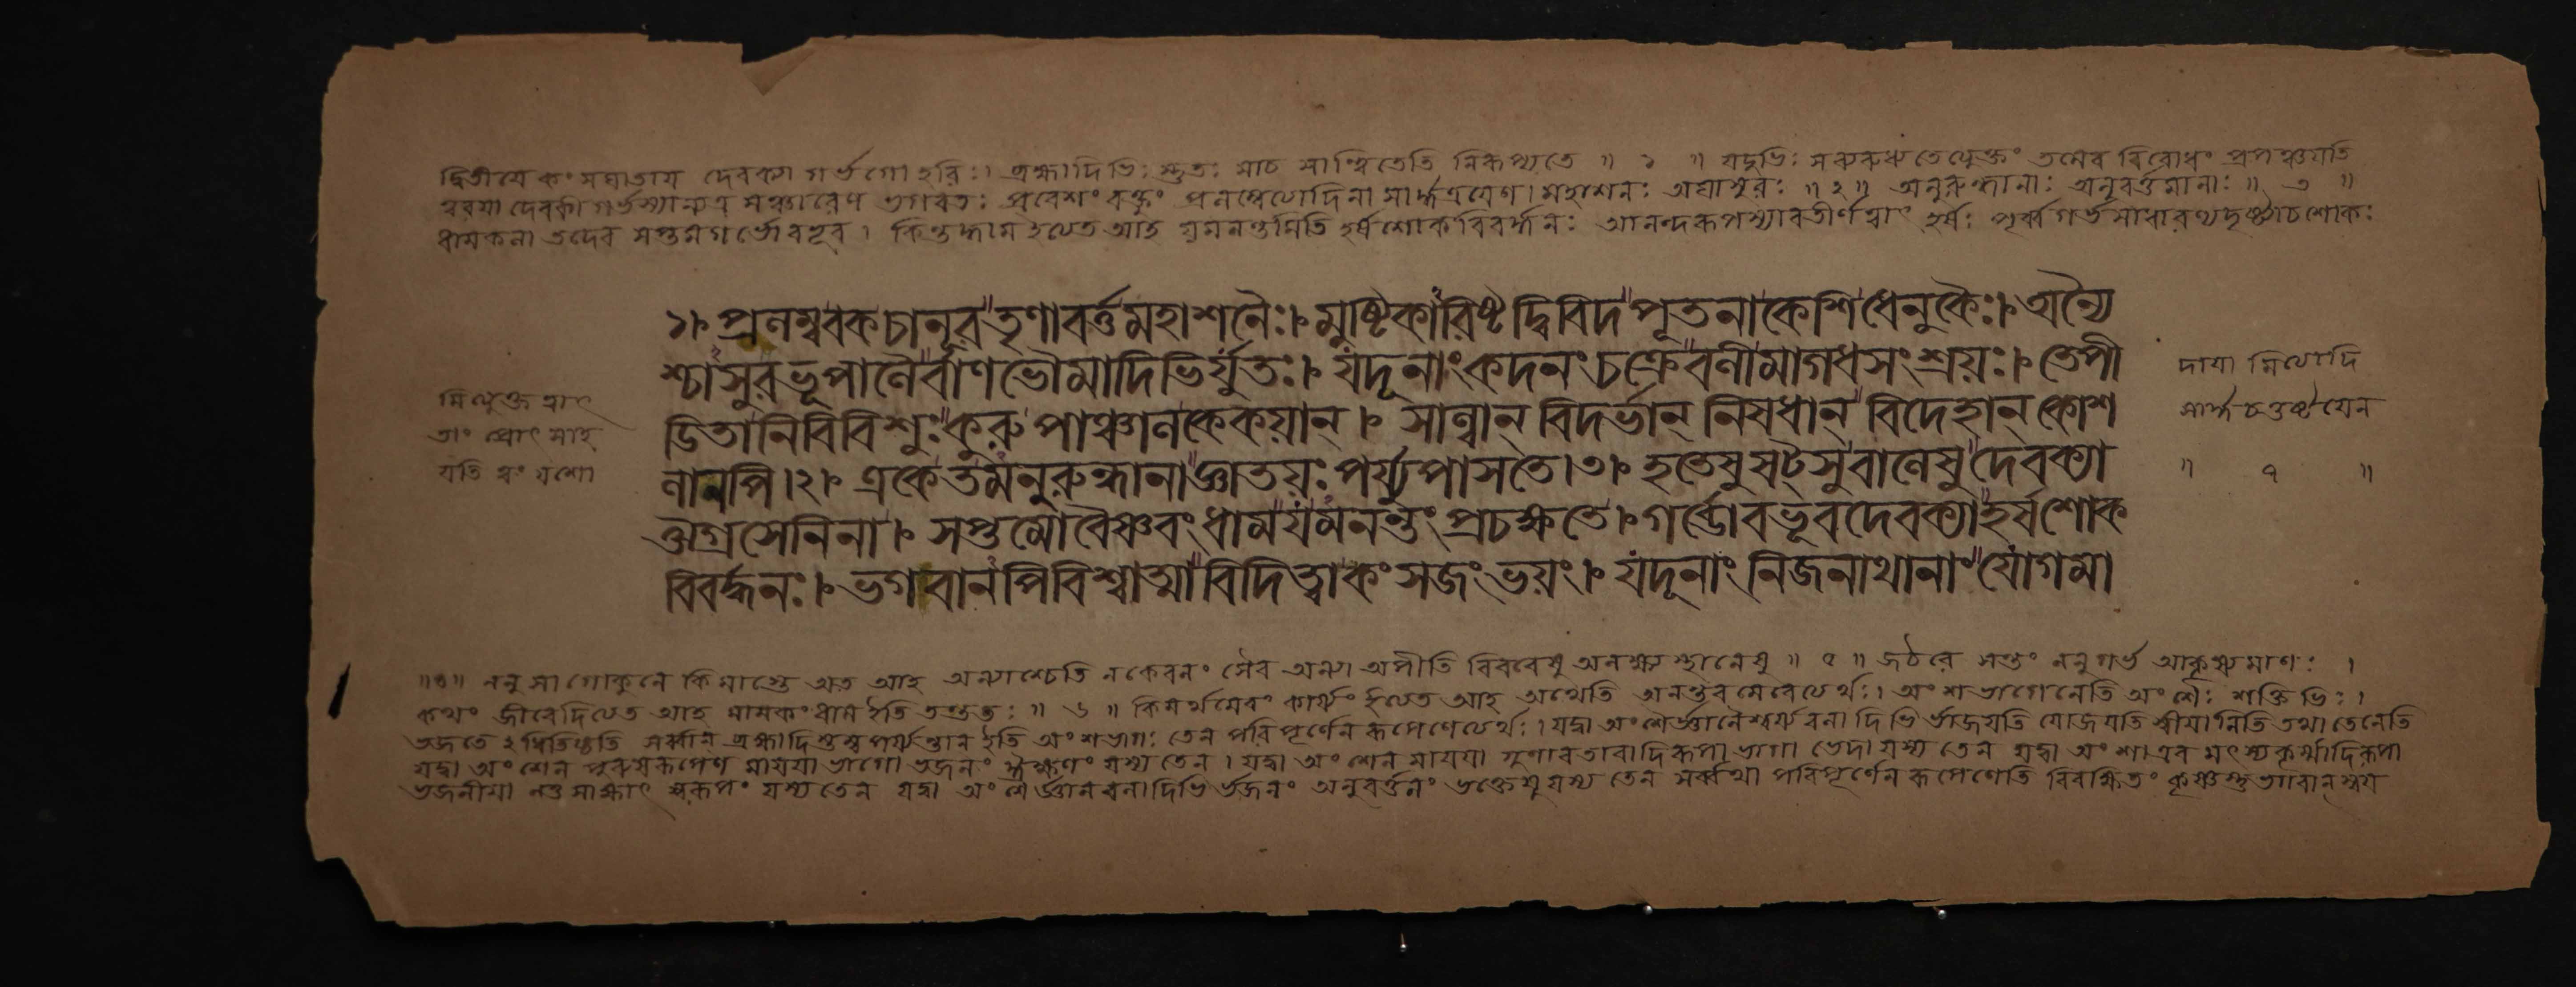 দ্বিতীয়ে কংসঘাতায় দেবক্যা গর্ভগো হরিঃ। ব্রহ্মাদিভিঃ স্তুতঃ সাচ সান্ত্বিতেতি নিরূপ্যতে ॥ ১ ॥ যদুভিঃ সরুরুধ্যতেত্যুক্তং তমেব বিরোধং প্রপঞ্চয়তি
দেবকীগর্ভস্যান্যত্র সঞ্চারেণ ভগবতঃ প্রবেশং বক্তুং প্রলম্বেত্যাদিনা সার্দ্ধত্রয়েণ। মহাশনঃ অঘাসুরঃ ॥ ২ ॥ অনুরুন্ধানাঃ অনুবর্ত্তমানাঃ ॥ ৩ ॥
ধামকলা তদেব সপ্তমগর্ভোবভূব। কিন্তদ্ধাম ইত্যত আহ যমনন্তমিতি হর্ষশোকবিবর্দ্ধনঃ আনন্দরূপস্যাবতীর্ণত্বাৎ হর্ষঃ পূর্ব্বগর্ভসাধারণ্যদৃষ্ট্যাচশোকঃ
১। প্রলম্ববকচানূরতৃণাবর্ত্তমহাশনৈঃ। মুষ্টিকারিষ্টদ্বিবিদপূতনাকেশিধেনুকৈঃ। অন্যৈ
শ্চাসুরভূপালৈর্বাণভৌমাদিভির্যুতঃ। যদূনাংকদনংচক্রেবলীমাগধসংশ্রয়ঃ। তেপী
ডিতানিবিবিশুঃকুরুপাঞ্চালকেকয়ান্। সাল্বান্ বিদর্ভান্ নিষধান্ বিদেহান্ কোশ
লানপি।২। একেতমনুরুন্ধানাজ্ঞাতয়ঃ পর্য্যুপাসতে।৩। হতেষুষট্সুবালেষুদেবক্যা
ঔগ্রসেনিনা। সপ্তমোবৈষ্ণবংধামযমনন্তংপ্রচক্ষতে। গর্ভোবভূবদেবক্যাহর্ষশোক
বিবর্দ্ধনঃ। ভগবানপিবিশ্বাত্মাবিদিত্বাকংসজংভয়ং। যদূনাংনিজনাথানাংযোগমা
নিত্যুক্তত্বাৎ
তাং প্রোৎসাহ
যতি ত্বং যশো
দায়া মিত্যাদি
সার্দ্ধচতুষ্টয়েন
॥ ৭ ॥
॥৪॥ ননু সা গোকুলে কিমাস্তে অত আহ অন্যাশ্চেতি নকেবলং সৈব অন্যা অপীতি বিবরেষু অলক্ষ্যস্থানেষু ॥ ৫ ॥ জঠরে সন্তং ননু গর্ভ আকৃষ্যমাণঃ ।
কথং জীবেদিত্যত আহ মামকং ধাম ইতি ততস্ততঃ ॥ ৬ ॥ কিমর্থমেবং কার্য্যং ইত্যত আহ অথেতি অনন্তরমেবেত্যর্থঃ। অংশভাগেনেতি অংশৈঃ শক্তিভিঃ।
ভজতে ইধিতিষ্ঠতি সর্ব্বান্ ব্রহ্মাদিস্তম্বপর্য্যন্তান্ ইতি অংশভাগঃ তেন পরিপূর্ণেন রূপেণেত্যর্থঃ। যদ্বা অংশৈর্জ্ঞানৈশ্বর্য্যবলাদিভি র্ভাজয়তি যোজয়তি স্বীয়ানিতি তথা তেনেতি
যদ্বা অংশেন পুরুষরূপেণ মায়য়া ভাগো ভজনং ঈক্ষণং যস্য তেন। যদ্বা অংশেন মায়য়া গুণাবতারাদিরূপা ভাগা ভেদা যস্য তেন যদ্বা অংশা এব মৎস্যকূর্ম্মাদিরূপা
ভজনীয়া নতু সাক্ষাৎ স্বরূপং যস্য তেন যদ্বা অংশৈর্জ্ঞানবলাদিভি র্ভজনং অনুবর্ত্তনং ভক্তেষু যস্য তেন সর্ব্বথা পরিপূর্ণেন রূপেণেতি বিবক্ষিতং কৃষ্ণস্তুভগবান্স্বয়